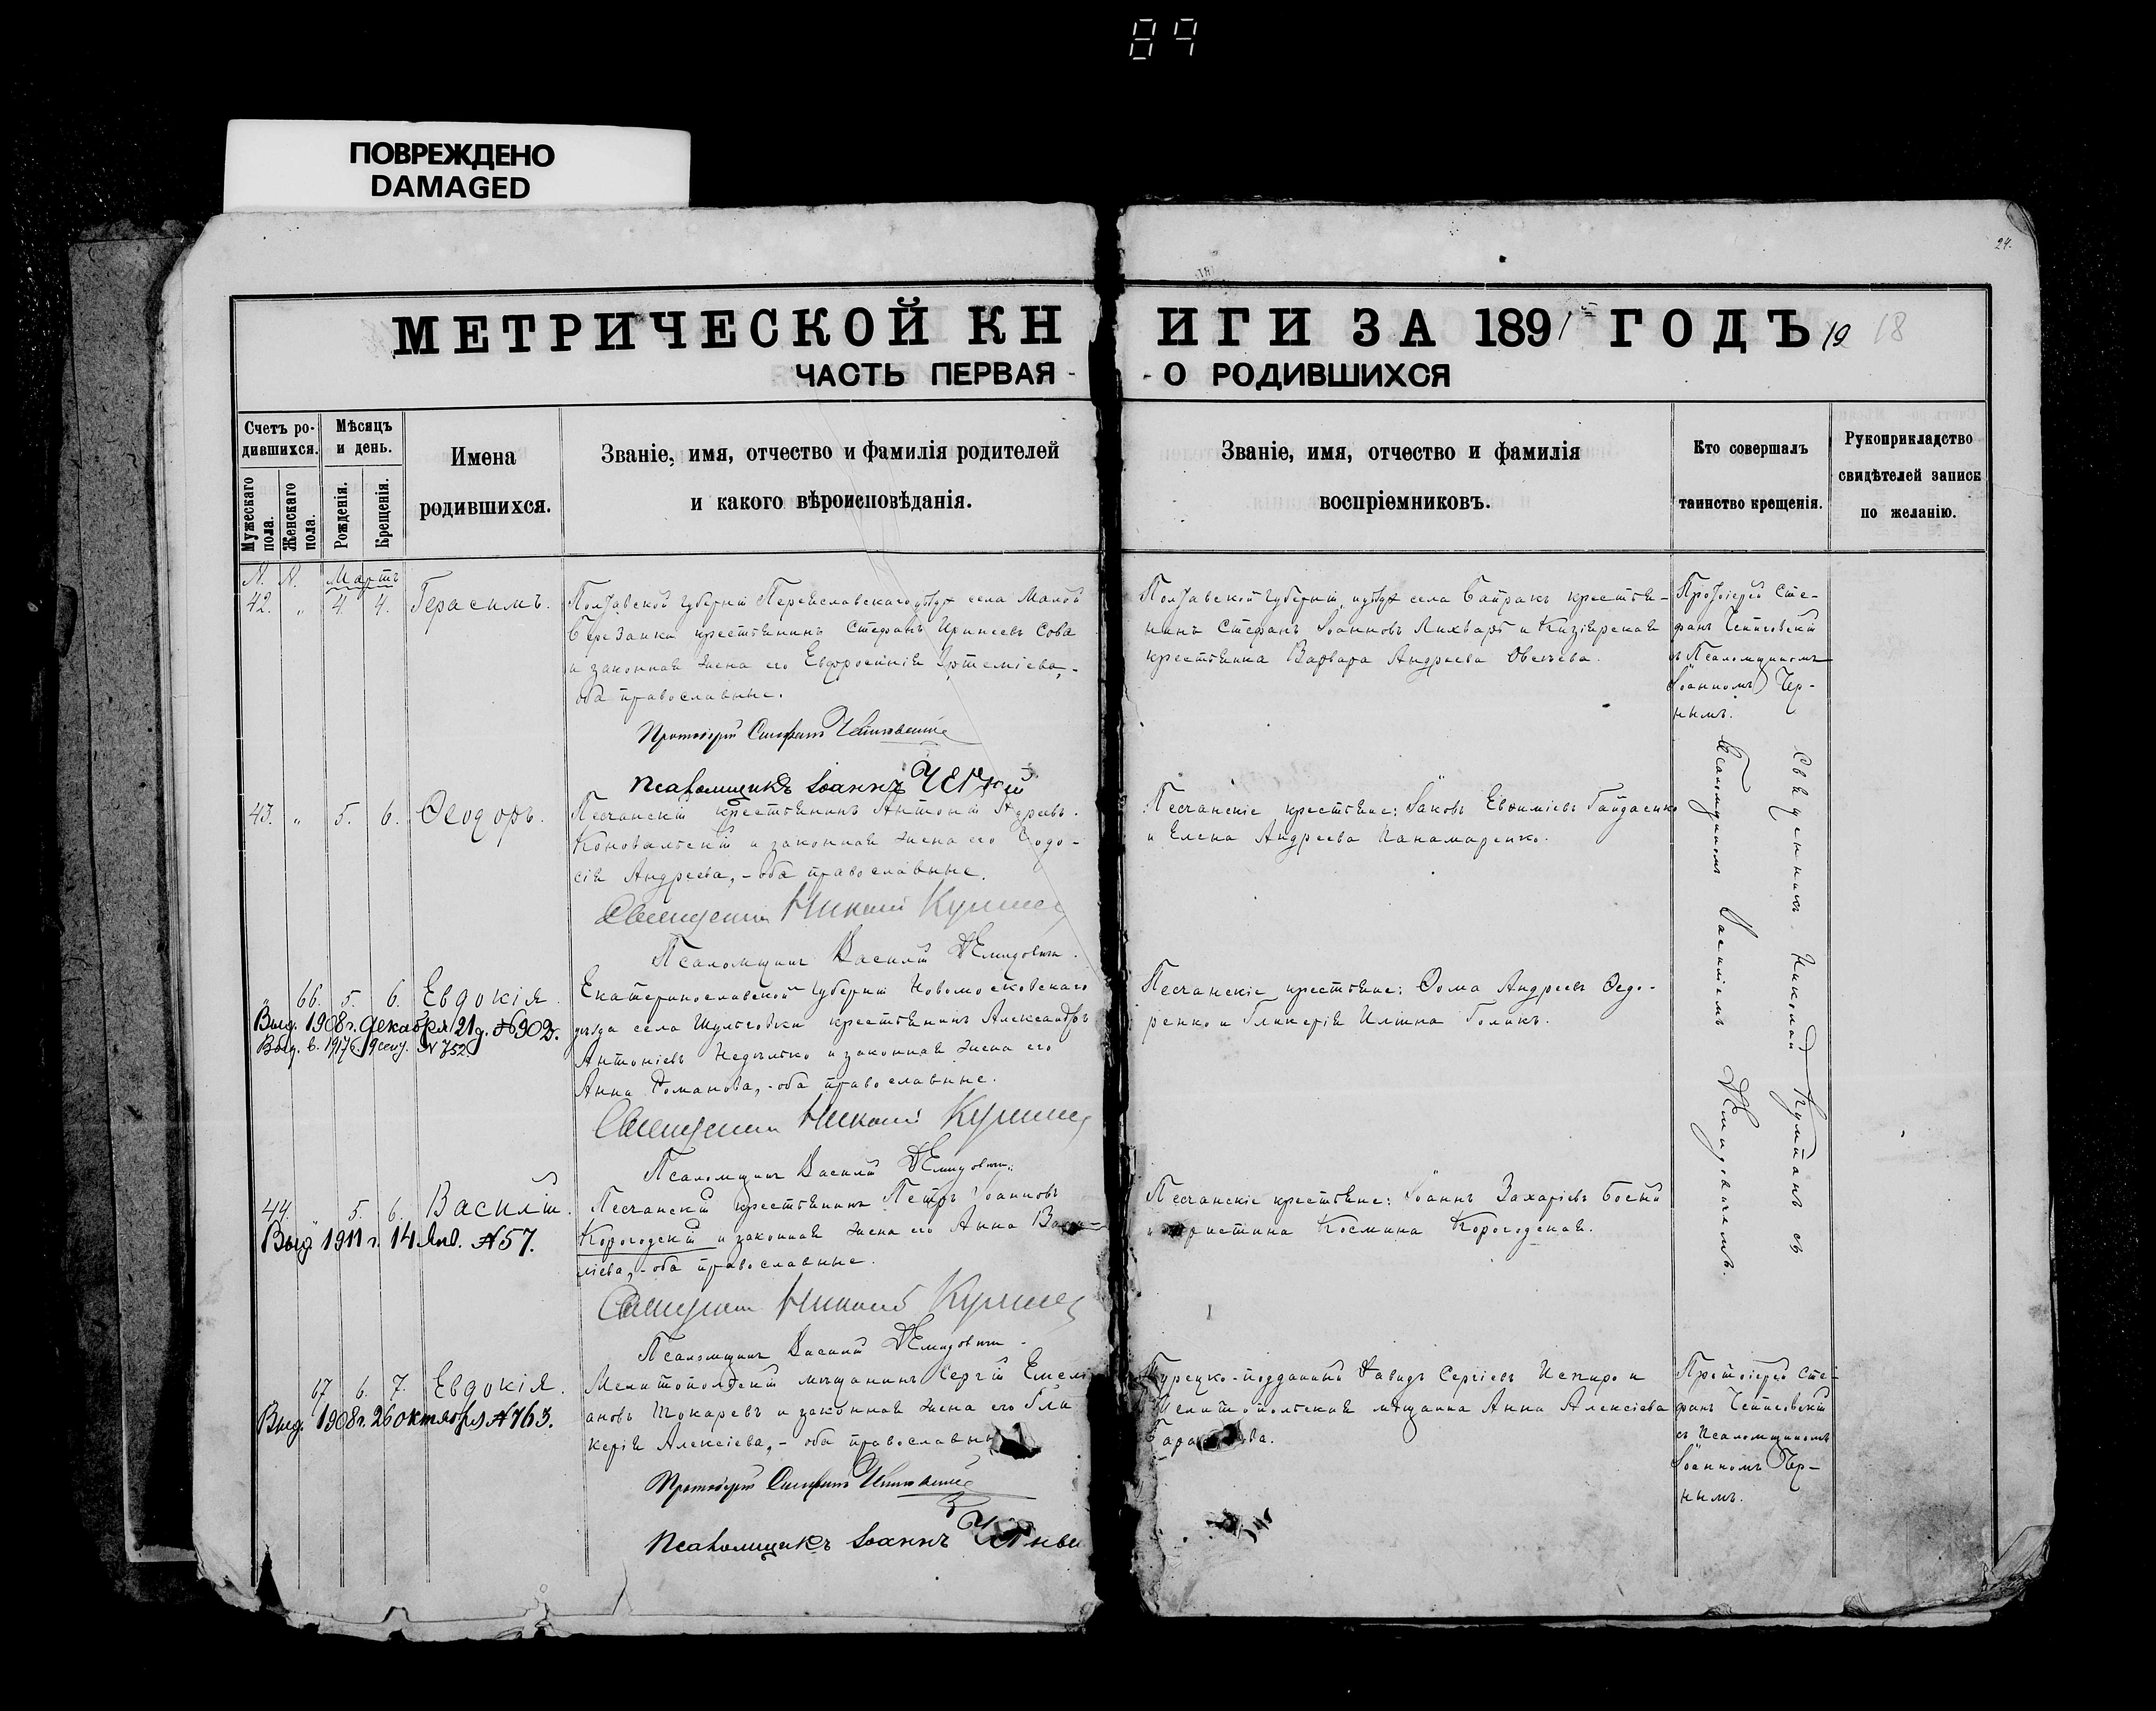 89
ПОВРЕЖДЕНО
DAMAGED
24.
МЕТРИЧЕСКОЙ КНИГИ ЗА 1891 ГОДЪ 19 18
ЧАСТЬ ПЕРВАЯ - - О РОДИВШИХСЯ
Счетъ ро-
дившихся.
Мужескаго пола.
Женскаго пола.
Мѣсяцъ
и день.
Рожденія.
Крещенія.
Имена
родившихся.
Званіе, имя, отчество и фамилія родителей
и какого вѣроисповѣданія.
Званіе, имя, отчество и фамилія
воспріемниковъ.
Кто совершалъ
таинство крещенія.
Рукоприкладство
свидѣтелей записи
по желанію.
N. N. Мартъ
42. " 4. 4. Герасимъ.
Полтавской губерніи Переяславскаго уѣзда села Малой
Березанки крестьянинъ Стефанъ Иринеевъ Сова
и законная жена его Евфросинія Артеміева, -
оба православные.
Протоіерей Стефанъ
Псаломщикъ Іоаннъ Черный
Полтавской губерніи, уѣзда села Байракъ крестья-
нинъ Стефанъ Іоанновъ Лихваръ и
крестьянка Варвара Андреева
Протоіерей Сте-
фанъ
съ Псаломщикомъ
Іоанномъ Чер-
нымъ.
43. " 5. 6. Ѳеодоръ.
Песчанскій крестьянинъ Антоній Андреевъ
Коновальскій и законная жена его Ѳеодо-
сія Андреева, - оба православные.
Священникъ Николай
Псаломщикъ Василій Демидовичъ.
Песчанскіе крестьяне: Іаковъ Евѳиміевъ Гайдаенко
и Елена Андреева Панамаренко.
Священникъ Николай съ
Псаломщикомъ Василіемъ Демидовичемъ.
" 66. 5. 6. Евдокія.
Выд. 1908 г. декабря 21 д. №902.
Выд. в. 1917 г. 9 сент. N 752
Екатеринославской губерніи Новомосковскаго
уѣзда села крестьянинъ Александръ
Антоніевъ и законная жена его
Анна Романова, - оба православные.
Священникъ Николай
Псаломщикъ Василій Демидовичъ.
Песчанскіе крестьяне: Ѳома Андреевъ Ѳедо-
ренко и Гликерія Ильина Голикъ.
44. " 5. 6. Василій.
Выд. 1911 г. 14 Янв. №57.
Песчанскій крестьянинъ Петръ Іоанновъ
Корогодскій и законная жена его Анна
ліева, - оба православные.
Священникъ Николай
Псаломщикъ Василій Демидовичъ.
Песчанскіе крестьяне: Іоаннъ Захаріевъ
и Христина Космина Корогодская.
67 6. 7. Евдокія.
Выд. 1908 г. 26 октября №763.
Мелитопольскій мѣщанинъ Сергій Емель
ановъ Токаревъ и законная жена его Гли
керія Алексіева, - оба православны
Протоіерей Стефанъ
Псаломщикъ Іоаннъ Черный
Турецко-подданный Давидъ Сергіевъ и
Мелитопольская мѣщанка Анна Алексіева
Протоіерей Сте-
фанъ
съ Псаломщикомъ
Іоанномъ Чер-
нымъ.